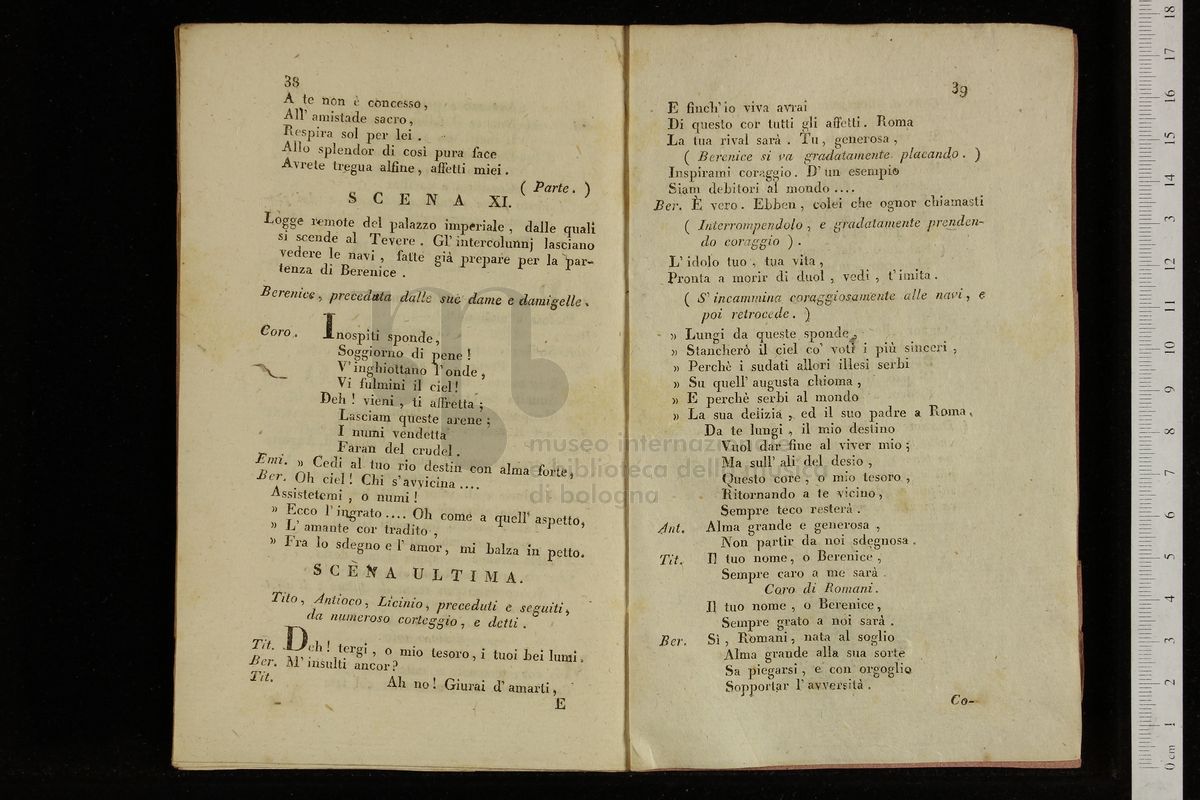 38
A te non è concesso,
All' amistade sacro,
Respira sol per lei.
Allo splendor di così pura face
Avrete tregua alfine, affetti miei.
( Parte. )
SCENA XI.
Logge remote del palazzo imperiale, dalle quali
si scende al Tevere. Gl' intercolunnj lasciano
vedere le navi, fatte già prepare per la par-
tenza di Berenice.
Berenice, preceduta dalle sue dame e damigelle.
Coro. Inospiti sponde,
Soggiorno di pene!
V' inghiottano l' onde,
Vi fulmini il ciel!
Deh! vieni, ti affretta;
Lasciam queste arene;
I numi vendetta
Faran del crudel.
Emi. » Cedi al tuo rio destin con alma forte,
Ber. Oh ciel! Chi s' avvicina ....
Assistetemi, o numi!
» Ecco l' ingrato .... Oh come a quell' aspetto,
» L' amante cor tradito,
» Fra lo sdegno e l' amor, mi balza in petto.
SCENA ULTIMA.
Tito, Antioco, Licinio, preceduti e seguiti,
da numeroso corteggio, e detti.
Tit. Deh! tergi, o mio tesoro, i tuoi bei lumi.
Ber. M' insulti ancor?
Tit. Ah no! Giurai d' amarti,
E
39
E finch' io viva avrai
Di questo cor tutti gli affetti. Roma
La tua rival sarà. Tu, generosa,
( Berenice si va gradatamente placando. )
Inspirami coraggio. D' un esempio
Siam debitori al mondo ....
Ber. È vero. Ebben, colei che ognor chiamasti
( Interrompendolo, e gradatamente prenden-
do coraggio ).
L' idolo tuo, tua vita,
Pronta a morir di duol, vedi, t' imita.
( S' incammina coraggiosamente alle navi, e
poi retrocede. )
» Lungi da queste sponde,
» Stancherò il ciel co' voti i più sinceri,
» Perchè i sudati allori illesi serbi
» Su quell' augusta chioma,
» E perchè serbi al mondo
» La sua delizia, ed il suo padre a Roma,
Da te lungi, il mio destino
Vuol dar fine al viver mio;
Ma sull' ali del desio,
Questo core, o mio tesoro,
Ritornando a te vicino,
Sempre teco resterà.
Ant. Alma grande e generosa,
Non partir da noi sdegnosa.
Tit. Il tuo nome, o Berenice,
Sempre caro a me sarà.
Coro di Romani.
Il tuo nome, o Berenice,
Sempre grato a noi sarà.
Ber. Sì, Romani, nata al soglio
Alma grande alla sua sorte
Sa piegarsi, e con orgoglio
Sopportar l' avversità.
Co-
museo internazionale
e biblioteca della musica
di bologna
0 cm 1 2 3 4 5 6 7 8 9 10 11 12 13 14 15 16 17 18